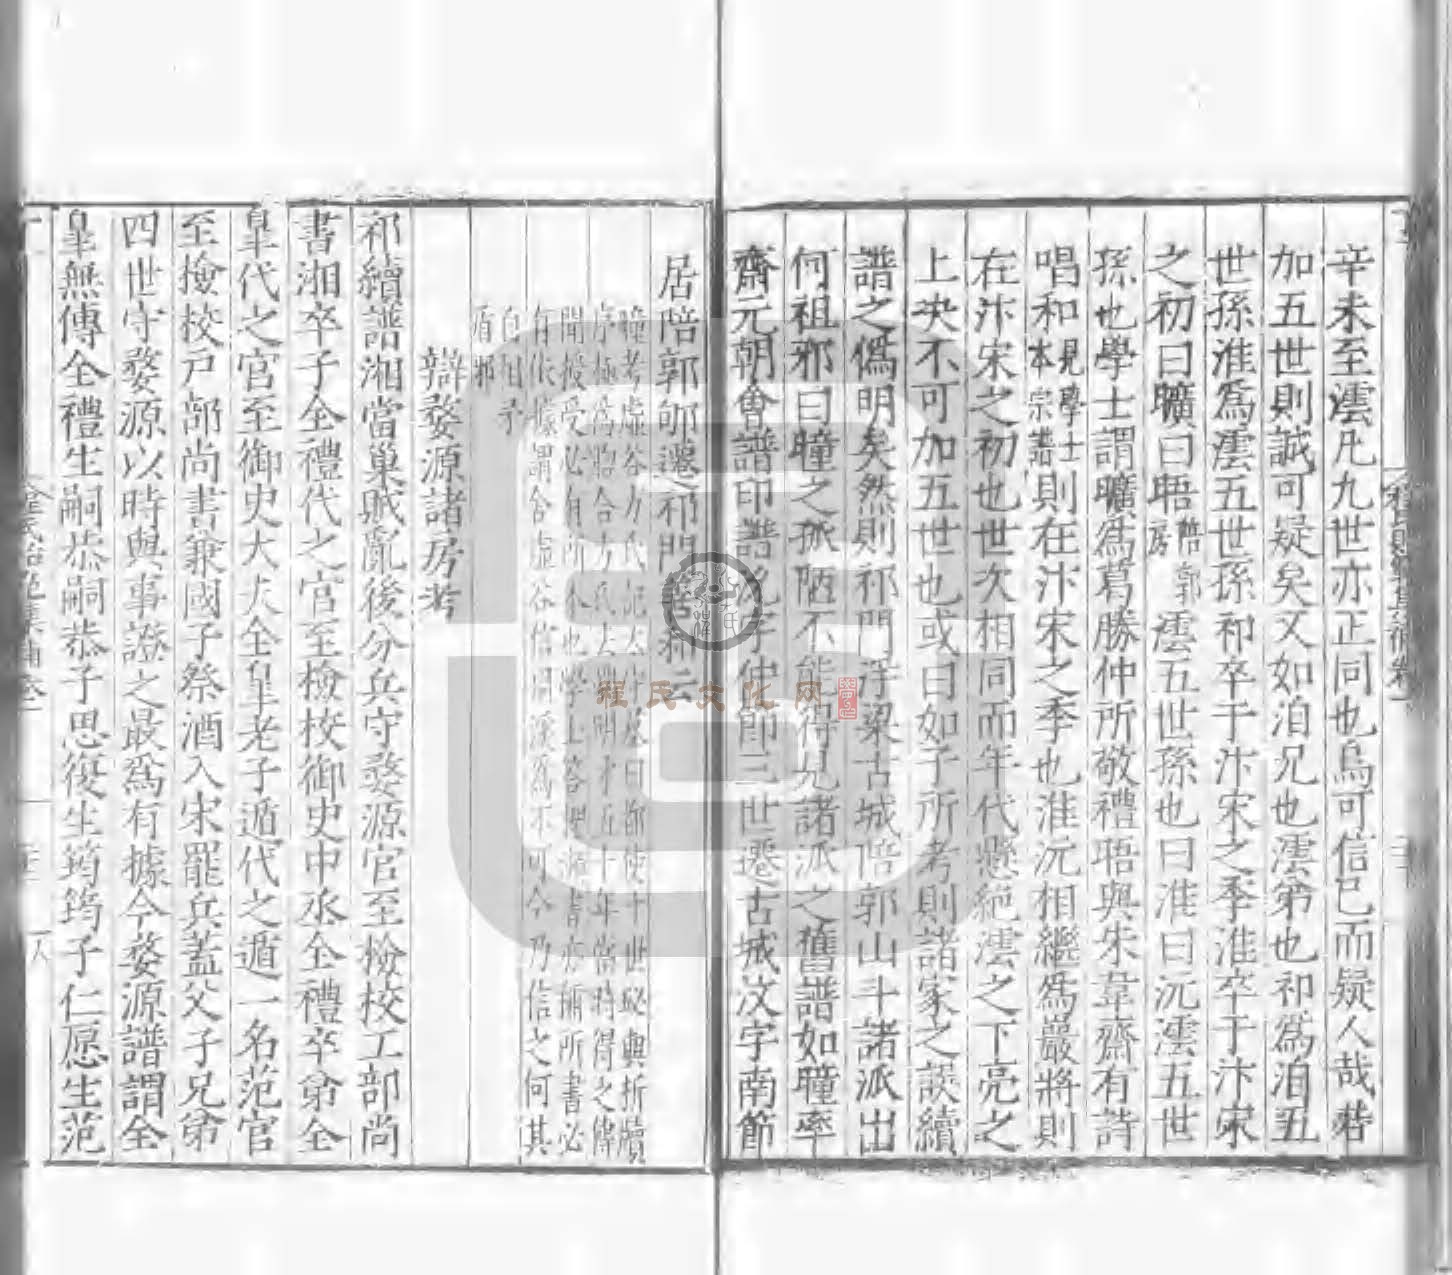 辛未至澐凡九世亦正同也烏可信已而疑人哉若
加五世則誠可疑矣又如洎兄也澐弟也祁為洎五
世孫淮為澐五世孫祁卒于汴宋之季淮卒于汴宋
之初曰曠曰晤陪郭房澐五世孫也曰淮曰沅澐五世
孫也學士謂曠為葛勝仲所敬禮晤與朱韋齋有詩
唱和見學士本宗譜則在汴宋之季也淮沅相繼為巖將則
在汴宋之初也世次相同而年代懸絕澐之下亮之
上决不可加五世也或曰如子所考則諸家之誤續
譜之僞明矣然則祁門浮梁古城陪郭山斗諸派出
何祖邪曰瞳之孤陋不能得見諸派之舊譜如瞳率
齋元朝會譜印譜 仲節三世遷古城汶字南節
居陪郭邮遷祁門善和云
瞳考虛谷方氏 曰 使十世 與折牘
序極為脗合方氏 明才近十年嘗特得之傳
聞授受必有所 也學士 書亦稱所書必
有依據謂舍虛谷信 溪為不可今乃信之何其
自相矛
盾邪
辯婺源諸房考
祁續譜湘當巢賊亂後分兵守婺源官至檢校工部尚
書湘卒子全禮代之官至檢校御史中丞全禮卒弟全
皐代之官至御史大夫全皐老子遁代之遁一名范官
至撿校戸部尚書兼國子祭酒入宋罷兵蓋父子兄弟
四世守婺源以時與事證之最為有據今婺源譜謂全
皐無傳全禮生嗣恭嗣恭子思復生筠筠子仁愿生范